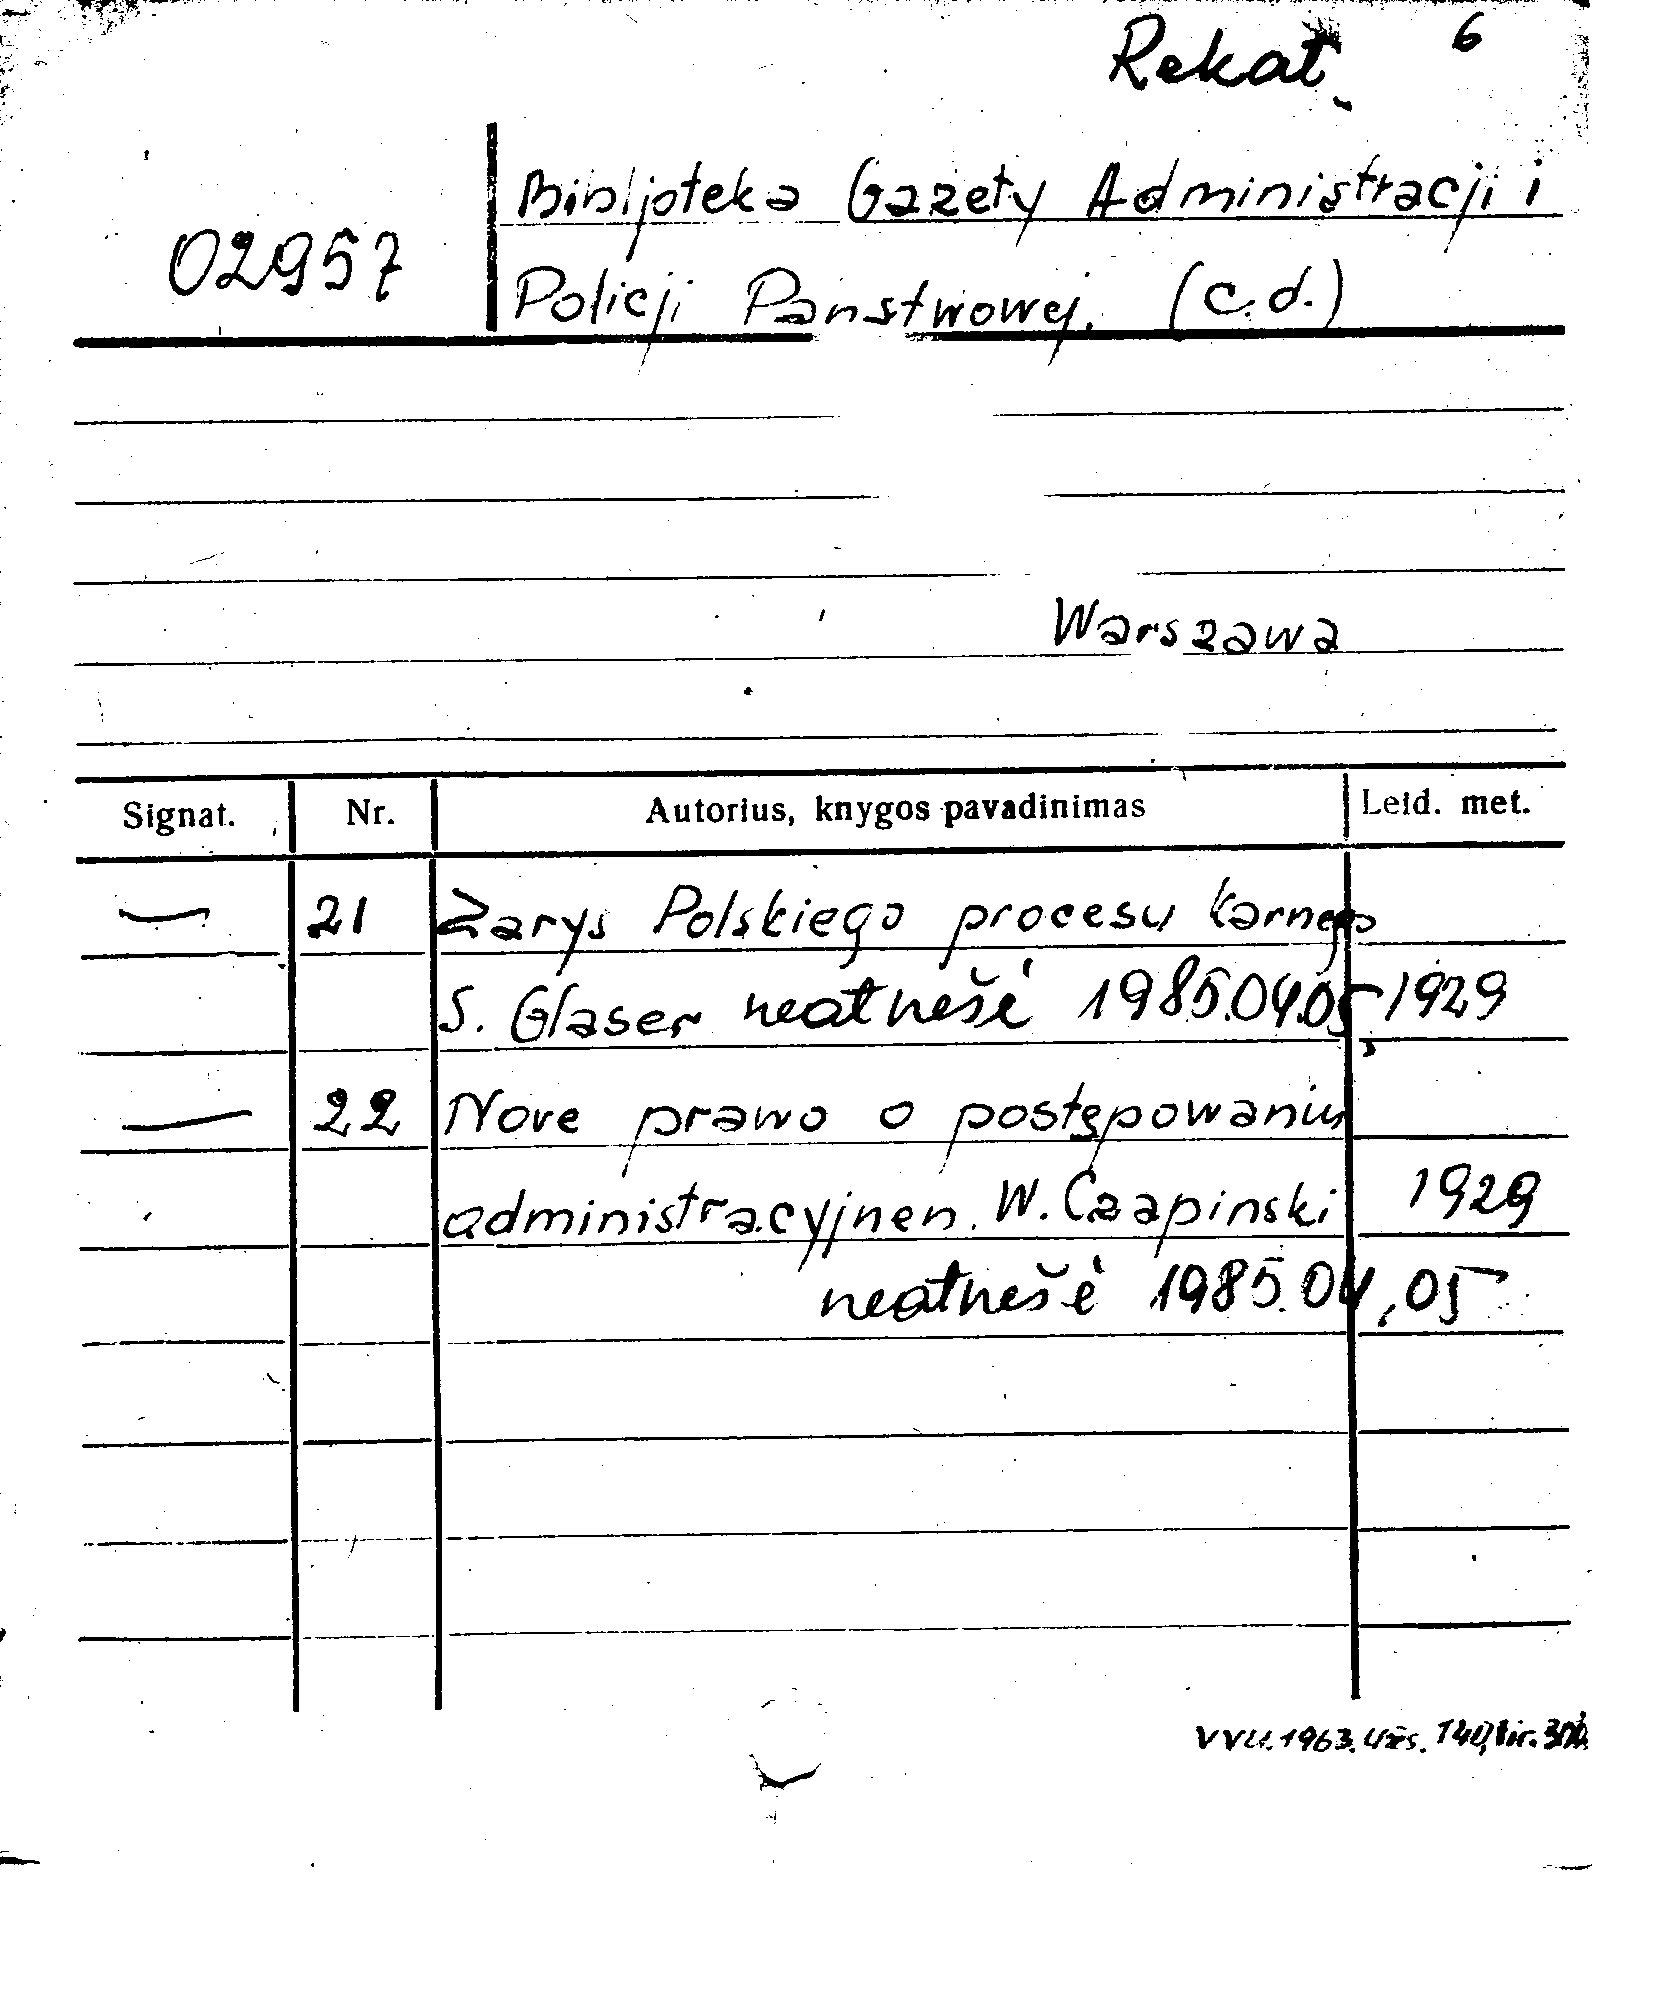 Rekat. 6
Bibljoteka Gazety Administracji i
02957
Policji Panstwowej. (c.d.)
Warszawa
Signat. Nr. Autorius, knygos pavadinimas Leid. met.
— 21 Zarys Polskiego procesu karnego
S. Glaser neatnešė 1985.04.05 1929
— 22 Nove prawo o postępowaniu
administracyjnen. W. Czapinski 1929
neatnešė 1985.04.05
VVU.1963.Užs. 140,